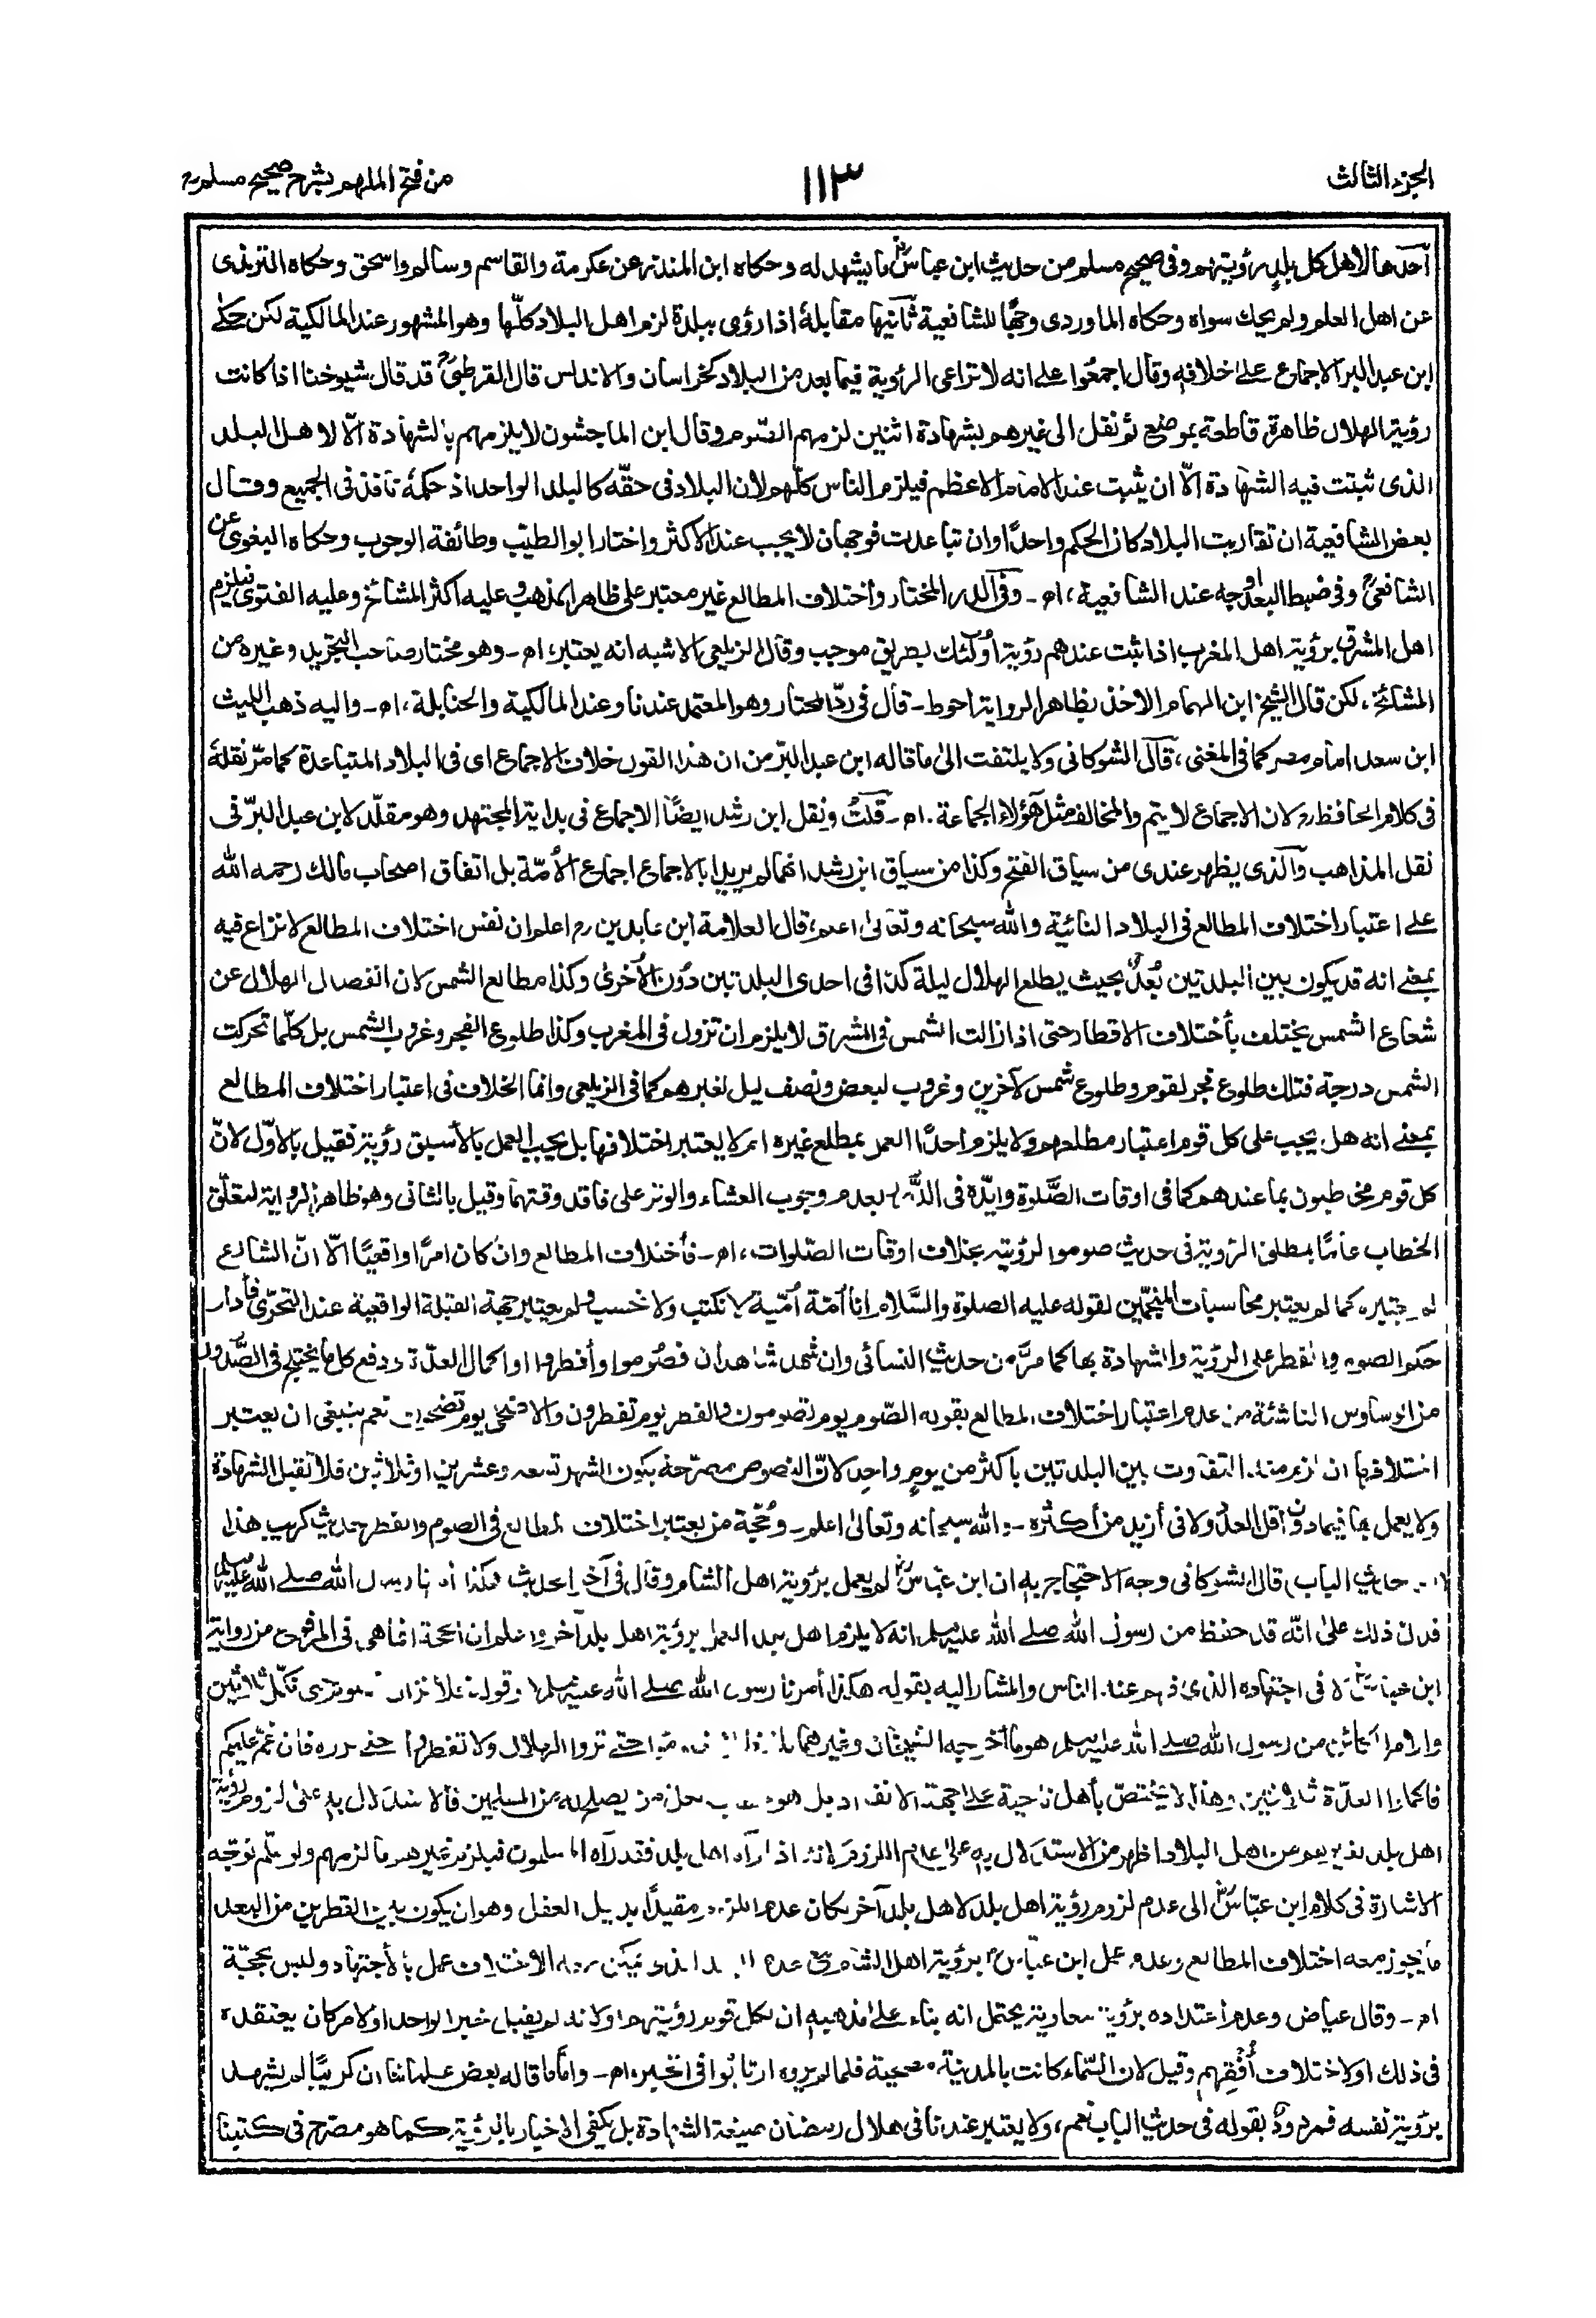 الجزء الثالث
١١٣
من فتح الملهم بشرح صحيح مسلم
أحدها لاهل كل بلدٍ رؤيتهم وفي صحيح مسلم من حديث ابن عباس ما يشهد له وحكاه ابن المنذر عن عكرمة والقاسم وسالم واسحق وحكاه الترمذى
عن اهل العلم ولم يحك سواه وحكاه الماوردى وجهًا للشافعية ثانيها مقابلهٗ اذا رؤى ببلدة لزم اهل البلاد كلّها وهو المشهور عند المالكية لكن حكے
ابن عبد البر الاجماع علےٰ خلافهٖ وقال اجمعُوا علے انه لا تراعى الرؤية فيما بعد من البلاد كخراسان والاندلس قال القرطبىؒ قد قال شيوخنا اذا كانت
رؤية الهلال ظاهرة قاطعة بموضع ثم نقل الى غيرهم بشهادة اثنين لزمهم الصّوم وقال ابن الماجشون لا يلزمهم بالشهادة الّا لاهل البلد
الذى ثبتت فيه الشهادة الّا ان يثبت عند الامام الاعظم فيلزم الناس كلّهم لان البلاد فى حقّه كالبلد الواحد اذ حكمهٗ نافذ فى الجميع وقال
بعض الشافعية ان تقاربت البلاد كان الحكم واحدًا وان تباعدت فوجهان لا يجب عند الاكثر واختار ابو الطيّب وطائفة الوجوب وحكاه البغوى عن
الشافعىؒ وفى ضبط البعد اوجه عند الشافعية، اھ - وفى الدر المختار واختلاف المطالع غير معتبر على ظاهر المذهب وعليه اكثر المشائخ وعليه الفتوى فيلزم
اهل المشرق برؤية اهل المغرب اذا ثبت عندهم رؤية اولٰئك بطريق موجب وقال الزيلعى الاشبه انه يعتبر، اھ - وهو مختار صاحب التجريد وغيره من
المشائخ، لكن قال الشيخ ابن الهمام الاخذ بظاهر الرواية احوط - قال فى ردّ المحتار وهو المعتمد عندنا وعند المالكية والحنابلة، اھ - واليه ذهب الليث
ابن سعد امام مصر كما فى المغنى، قال الشوكانى ولا يلتفت الىٰ ما قاله ابن عبد البرّ من ان هذا القول خلاف الاجماع اى فى البلاد المتباعدة كما مرّ نقلهٗ
فى كلام الحافظ رح لان الاجماع لا يتم والمخالف مثل هٰؤلاء الجماعة. اھ - قلتُ ونقل ابن رشد ايضًا الاجماع فى بداية المجتهد وهو مقلّد لابن عبد البرّ فى
نقل المذاهب والذى يظهر عندى من سياق الفتح وكذا من سياق ابن رشد انهما لم يريدا بالاجماع اجماع الأمّة بل اتفاق اصحاب مالك رحمه الله
علے اعتبار اختلاف المطالع فى البلاد النائية والله سبحانه وتعالىٰ اعلم، قال العلامة ابن عابدين رح اعلم ان نفس اختلاف المطالع لا نزاع فيه
بمعنے انه قد يكون بين البلدتين بُعدٌ بحيث يطلع الهلال ليلة كذا فى احدى البلدتين دون الأخرىٰ وكذا مطالع الشمس لان انفصال الهلال عن
شعاع الشمس يختلف باختلاف الاقطار حتى اذا زالت الشمس فى المشرق لا يلزم ان تزول فى المغرب وكذا طلوع الفجر وغروب الشمس بل كلّما تحركت
الشمس درجة فتلك طلوع فجر لقوم وطلوع شمس لآخرين وغروب لبعض ونصف ليل لغيرهم كما فى الزيلعى وانما الخلاف فى اعتبار اختلاف المطالع
بمعنے انه هل يجب على كل قوم اعتبار مطلعهم ولا يلزم احدًا العمل بمطلع غيره ام لا يعتبر اختلافها بل يجب العمل بالأسبق رؤية فقيل بالاوّل لانّ
كل قوم مخاطبون بما عندهم كما فى اوقات الصّلوة وايّده فى الدرر بعدم وجوب العشاء والوتر على فاقد وقتهما وقيل بالثانى وهو ظاهر الرواية لتعلّق
الخطاب عامًّا بمطلق الرؤية فى حديث صوموا لرؤيته بخلاف اوقات الصّلوات، اھ - فاختلاف المطالع وان كان امرًا واقعيًا الّا انّ الشارع
لم يعتبره كما لم يعتبر محاسبات المنجّمين لقوله عليه الصلوة والسّلام انا أمّة أمّية لا نكتب ولا نحسب ولم يعتبر جهة القبلة الواقعية عند التحرّى فأدار
حكم الصوم والفطر على الرؤية والشهادة بها كما مرّ من حديث النسائى وان شهد شاهدان فصوموا وأفطروا او اكمال العدّة ودفع كل ما يختلج فى الصّدور
من الوساوس الناشئة من عدم اعتبار اختلاف المطالع بقوله الصّوم يوم تصومون والفطر يوم تفطرون والاضحى يوم تضحون نعم ينبغى ان يعتبر
اختلافها ان لزم منه التفاوت بين البلدتين بأكثر من يومٍ واحدٍ لانّ النصوص مصرّحة بكون الشهر تسعة وعشرين او ثلاثين فلا تقبل الشهادة
ولا يعمل بها فيما دون اقل العدد ولا فى أزيد من أكثره - والله سبحانه وتعالىٰ اعلم - وحُجّة من يعتبر اختلاف المطالع فى الصوم والفطر حديث كريب هذا
حديث الباب، قال الشوكانى وجه الاحتجاج بهٖ ان ابن عباس لم يعمل برؤية اهل الشام وقال فى آخر الحديث هكذا أمرنا رسول الله صلے الله عليه وسلم
فدل ذلك علىٰ انّه قد حفظ من رسول الله صلے الله عليه وسلم انه لا يلزم اهل بلد العمل برؤية اهل بلد آخر واعلم ان الحجة انما هى فى المرفوع من رواية
ابن عباس لا فى اجتهاده الذى فهم عنه الناس والمشار اليه بقوله هكذا أمرنا رسول الله صلے الله عليه وسلم هو قوله فلا نزال نصوم حتى نكمل ثلاثين
والامر الكائن من رسول الله صلے الله عليه وسلم هو ما أخرجه الشيخان وغيرهما بلفظ لا تصوموا حتے تروا الهلال ولا تفطروا حتے تروه فان غمّ عليكم
فاكملوا العدّة ثلاثين وهذا لا يختصّ بأهل ناحية علےٰ جهة الانفراد بل هو خطاب لكل من يصلح له من المسلمين فالاستدلال بهٖ علىٰ لزوم رؤية
اهل بلد لغيرهم من اهل البلاد اظهر من الاستدلال بهٖ علىٰ عدم اللزوم لانه اذا رآه اهل بلد فقد رآه المسلمون فيلزم غيرهم ما لزمهم ولو سُلّم توجّه
الاشارة فى كلام ابن عبّاس الى عدم لزوم رؤية اهل بلد لاهل بلد آخر لكان عدم اللزوم مقيدًا بدليل العقل وهو ان يكون بين القطرين من البعد
ما يجوز معه اختلاف المطالع وعدم عمل ابن عبّاس برؤية اهل الشام مع عدم البعد الذى يمكن معه الاختلاف عمل بالأجتهاد وليس بحجّة
اھ - وقال عياض وعدم أعتداده برؤية معاوية يحتمل انه بناء علےٰ مذهبهٖ ان لكل قوم رؤيتهم او لانه لم يقبل خبر الواحد او لامر كان يعتقده
فى ذلك او لاختلاف أفقهم وقيل لان السّماء كانت بالمدينة مصحية فلما لم يروه ارتابُوا فى الخبر، اھ - وأما ما قاله بعض علمائنا ان كريبًا لم يشهد
برؤية نفسه فمردودٌ بقوله فى حديث الباب نعم، ولا يعتبر عندنا فى هلال رمضان صيغة الشهادة بل يكفى الاخبار بالرؤية كما هو مصرّح فى كتبنا